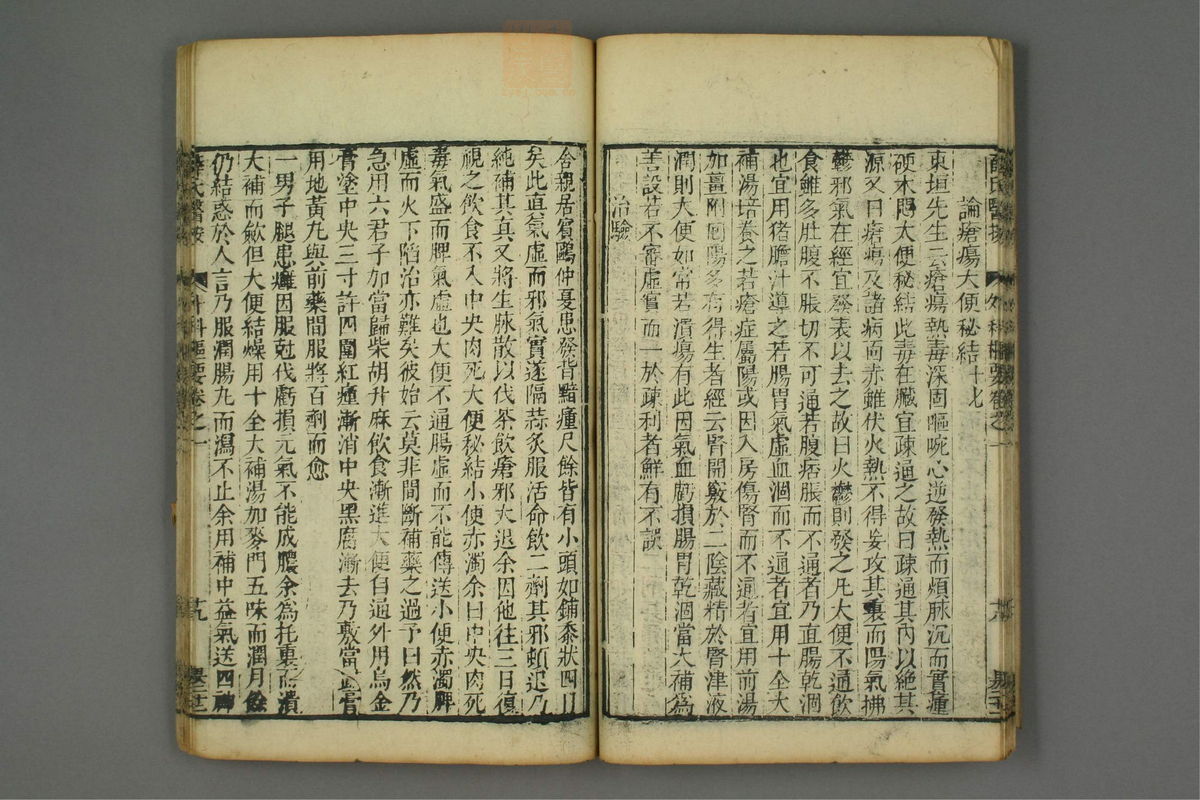 論瘡瘍大便秘結十七
東垣先生云瘡瘍熱毒深固嘔啘心逆發熱而煩脉沉而實瘇
硬木悶大便秘結此毒在臟宜疎通之故曰疎通其內以絶其
源又曰瘡瘍及諸病面赤雖伏火熱不得妄攻其裏而陽氣拂
鬱邪氣在經宜發表以去之故曰火鬱則發之凡大便不通飲
食雖多肚腹不脹切不可通若腹痞脹而不通者乃直腸乾涸
也宜用猪膽汁導之若腸胃氣虛血涸而不通者宜用十全大
補湯培養之若瘡症屬陽或因入房傷腎而不通者宜用前湯
如薑附囘陽多有得生者經云腎開竅於二陰藏精於腎津液
潤則大便如常若潰瘍有此因氣血虧損腸胃乾涸當大補為
善設若不審虛實而一於疎利者鮮有不誤
治驗
舍親居賓鷗仲夏患發背黯瘇尺餘皆有小頭如鋪黍狀四日
矣此真氣虛而邪氣實遂隔蒜灸服活命飲二劑其邪頓退乃
純補其真又將生脉散以代茶飲瘡邪大退余因他往三日復
視之飲食不入中央肉死大便秘結小便赤濁余曰中央肉死
毒氣盛而脾氣虛也大便不通腸虛而不能傳送小便赤濁脾
虛而火下陷治亦難矣彼始云莫非間斷補藥之過予曰然乃
急用六君子加當歸柴胡升麻飲食漸進大便自通外用烏金
膏塗中央三寸許四圍紅瘇漸消中央黑腐漸去乃敷當
用地黃丸與前藥間服將百劑而愈
一男子腿患癰因服尅伐虧損元氣不能成膿余為托裏而潰
大補而斂但大便結燥用十全大補湯加麥門五味而潤月餘
仍結惑於人言乃服潤腸丸而瀉不止余用補中益氣送四神
薛氏醫按
外科樞要卷之一